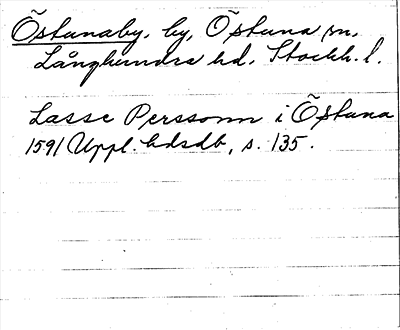 Östunaby, by, Östuna sn,
Långhundra hd, Stockh. l.
Lasse Perssonn i Östuna
1591 Uppl. hdsdb, s. 135.